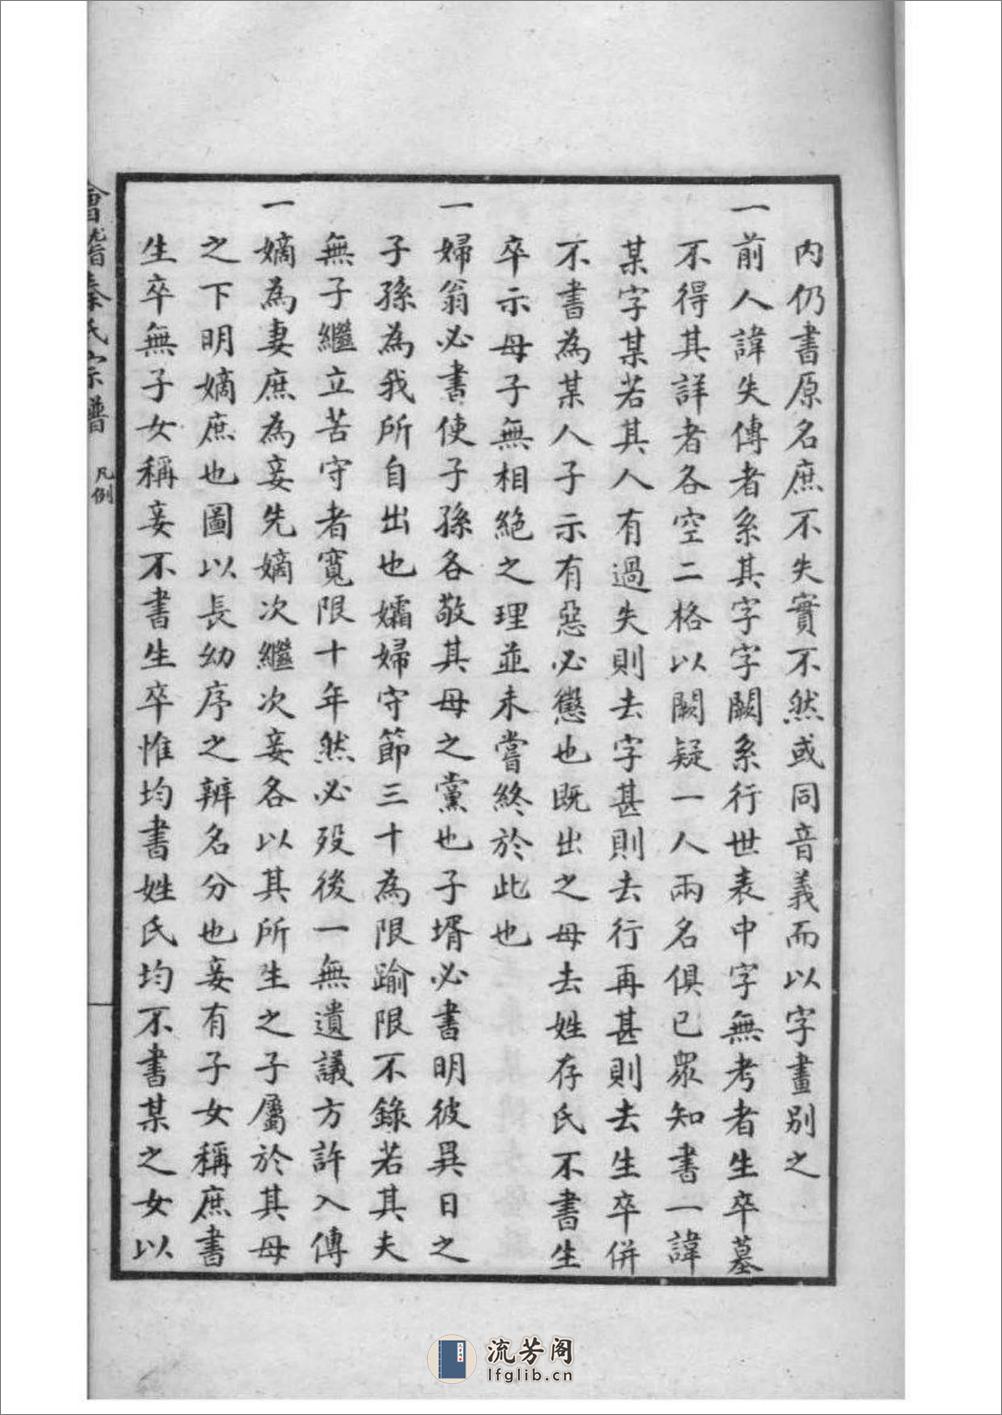 内仍書原名庶不失實不然或同音義而以字畫别之
一前人諱失傳者系其字字闕系行世表中字無考者生卒墓
不得其詳者各空二格以闕疑一人兩名俱已眾知書一諱
某字某若其人有過失則去字甚則去行再甚則去生卒併
不書為某人子示有惡必懲也既出之母去姓存氏不書生
卒示母子無相絶之理並未嘗終於此也
一婦翁必書使子孫各敬其母之黨也子壻必書明彼異日之
子孫為我所自出也孀婦守節三十為限踰限不錄若其夫
無子繼立苦守者寬限十年然必歿後一無遺議方許入傳
一嫡為妻庶為妾先嫡次繼次妾各以其所生之子屬於其母
之下明嫡庶也圖以長幼序之辨名分也妾有子女稱庶書
生卒無子女稱妾不書生卒惟均書姓氏均不書某之女以
會稽秦氏宗譜 凡例
流芳阁
lfglib.cn